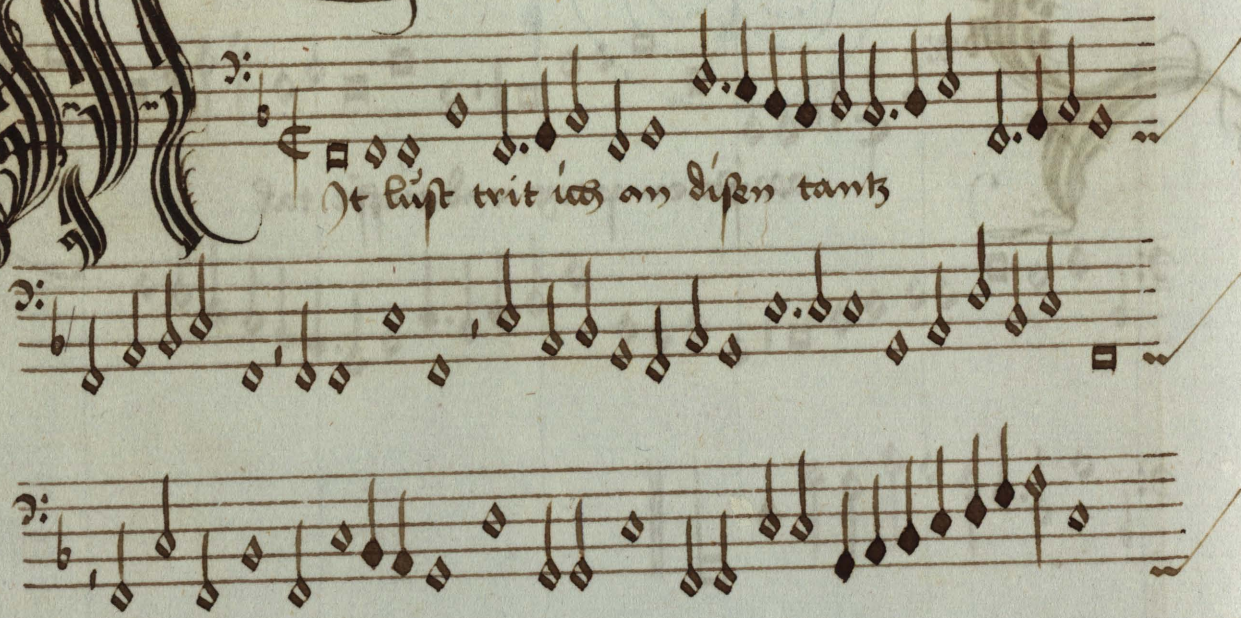 It lust trit ich an disen tantz